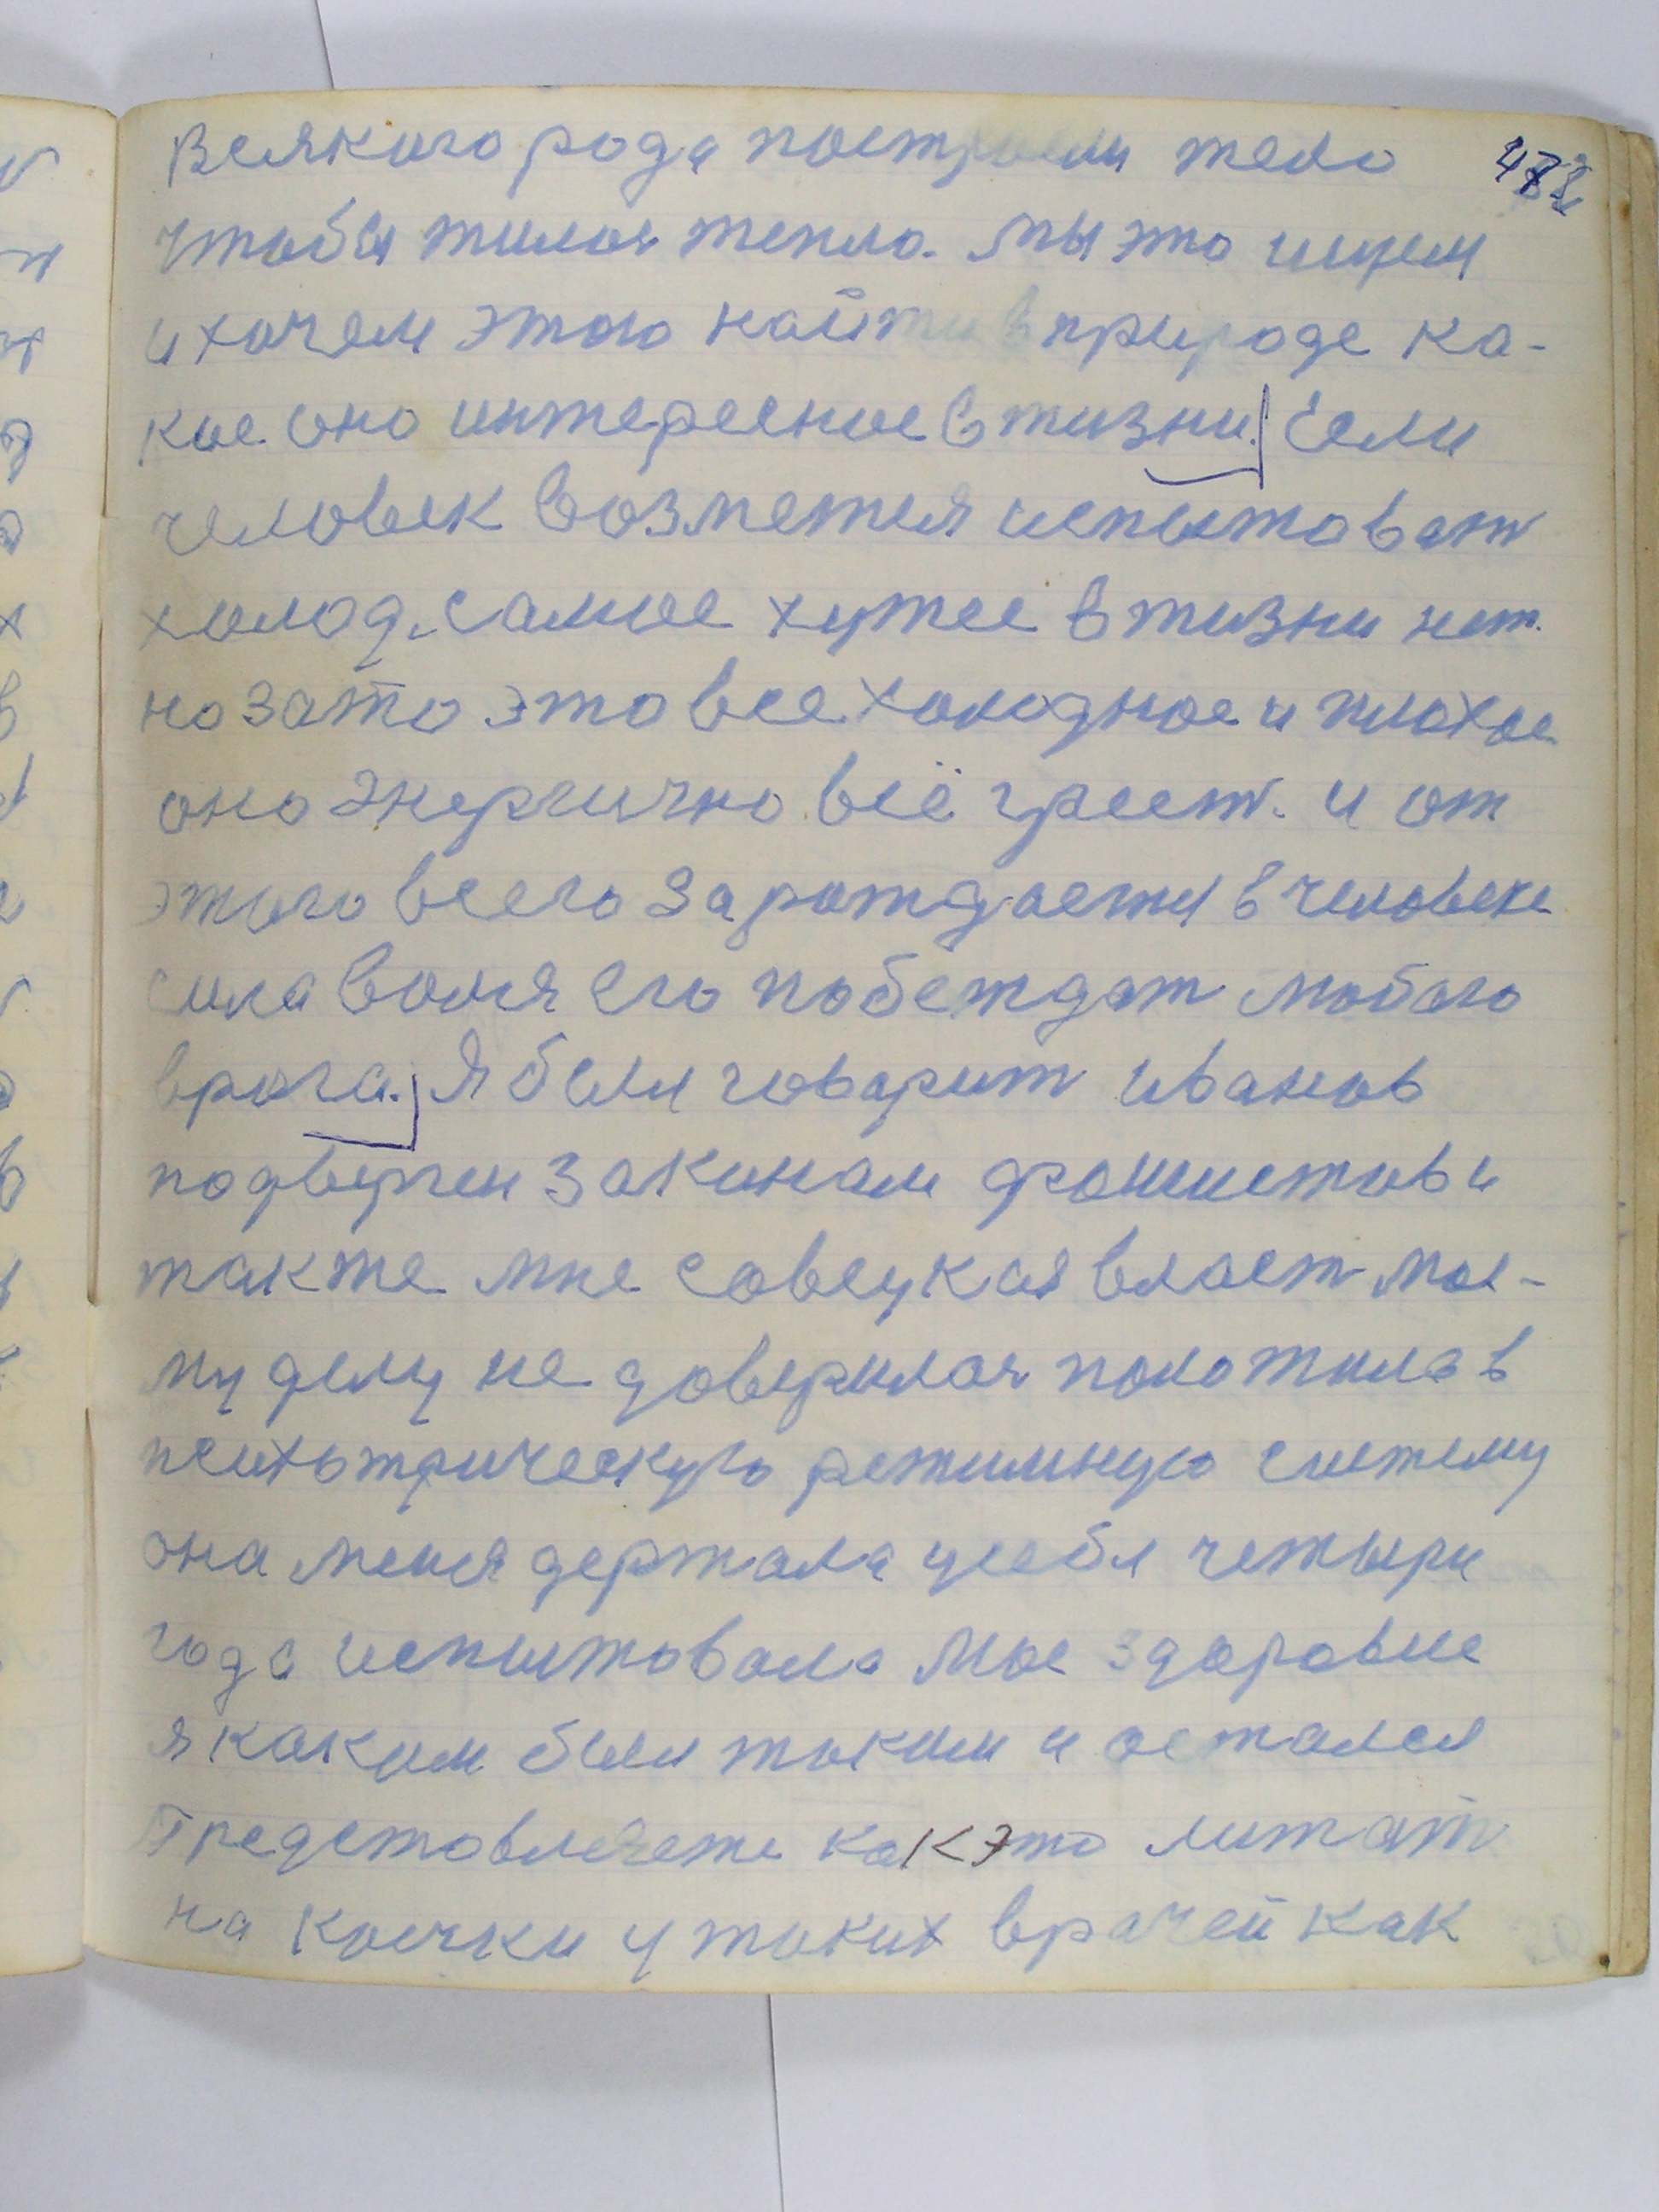 Всякого рода построели тело
чтобы тилося тепло. мы это ищем
и хочем этого найти в природе ка-
кое оно интересное в жизни. Если
человек возметця испытоват
холод, самое хужее в жизни нет.
но зато это все холодное и плохое
оно энергично всё греет. и от
этого всего зарождается в человеке
сила воля его побеждат любого
врога. Я был говорит иванов
подверген законам фошистов и
также мне совецкая власт мое-
му делу не доверилася положила в
психотрическую режимную систему
она меня держала у себя четыри
года испытовала мое здоровие
я каким был таким и остался
Представляете как это лижат
на коечки у таких врачей как